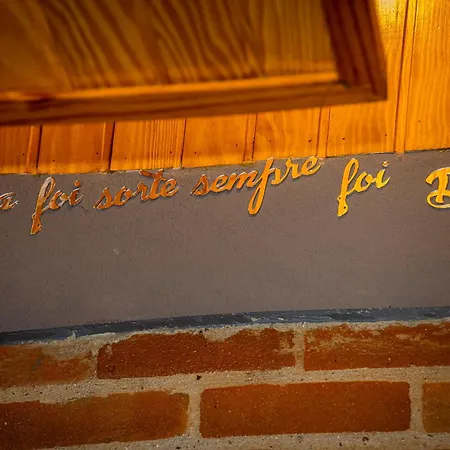 a foi sorte sempre foi D